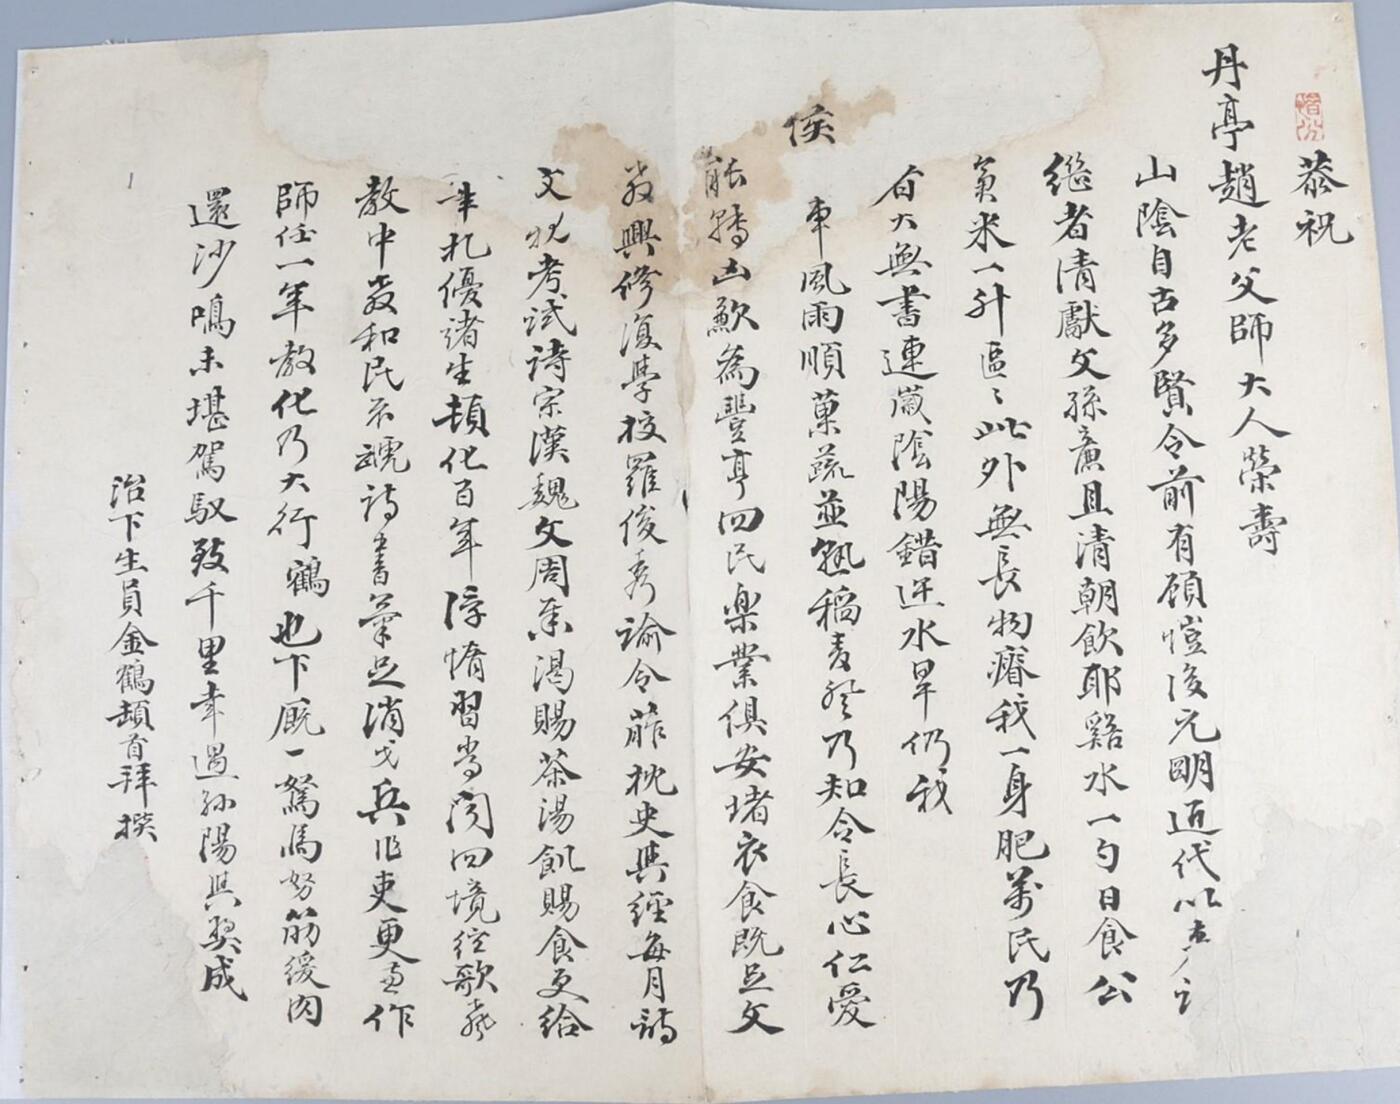 恭祝
丹亭趙老父師大人榮壽
山陰自古多賢令前有顧愷後元明近代以來
繼者清獻文孫廉且清朝飲耶谿水一勺日食公
負米一升區〻此外無長物瘠我一身肥萬民乃
有大無書連歲陰陽錯迕水旱仍我
侯
車風雨順菓蔬並熟稻麥登乃知令長心仁愛
能轉凶歉為豐亨四民樂業俱安堵衣食既足文
教興修復學校羅俊秀諭令葄枕史與經每月詩
文校考試詩宗漢魏文周秦渴賜茶湯飢賜食更給
筆札優諸生頓化百年浮惰習當閭四境絃歌聲
教中教和民不競詩書氣足消戈兵作吏更兼作
師任一年教化乃大行鶴也下厩一駑馬努筋緩肉
還沙鳴未堪駕馭致千里幸遇孫陽與契成
治下生員金鶴頓首拜撰